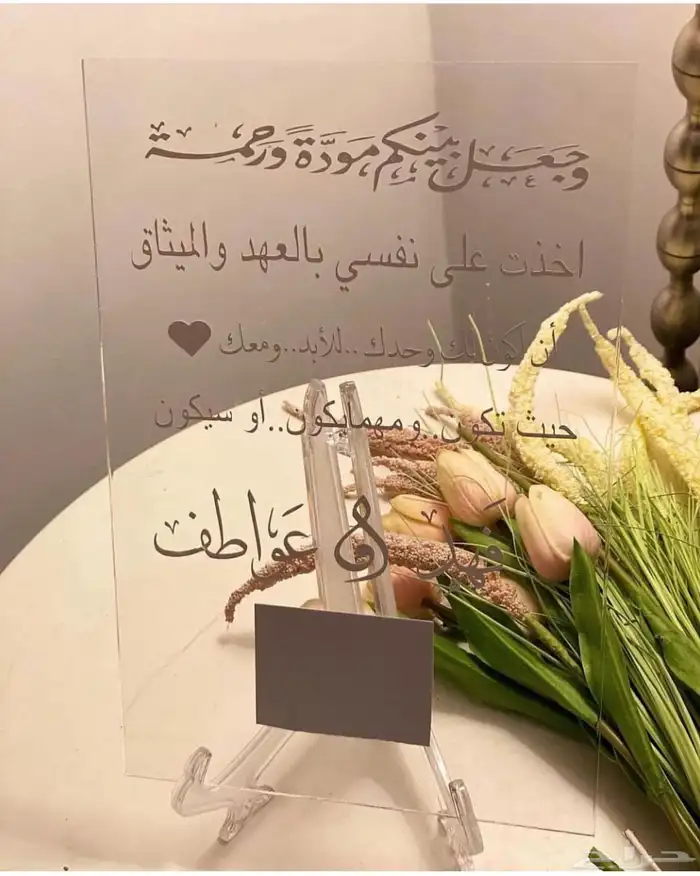 وَجَعَلَ بَيْنَكُم مَوَدَّةً وَرَحمة
اخذت على نفسي بالعهد والميثاق
أن أكون لك وحدك..للأبد..ومعك ♥
حيث تكون..ومهمايكون..أو سيكون
فَهد و عَواطف
حراج